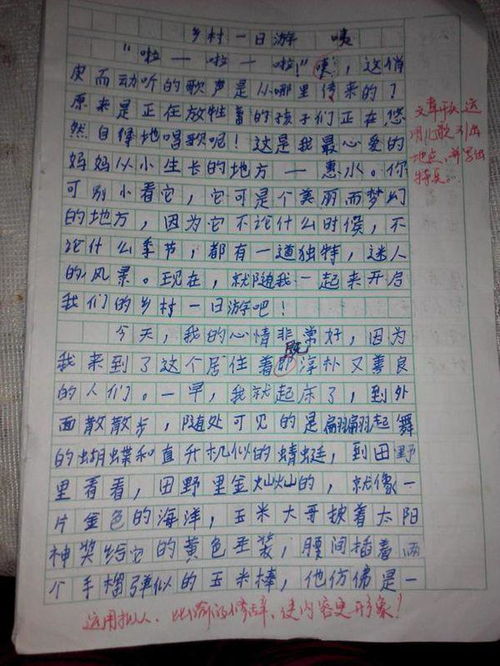 乡村一日游 咦
“啦—啦—啦!”咦,这俏
皮而动听的歌声是从哪里传来的?
原来是正在放牲着的孩子们正在悠
然自得地唱歌呢!这是我最心爱的
妈妈从小生长的地方—惠水。你
可别小看它,它可是个美丽而梦幻
的地方,因为它不论什么时候,不
论什么季节,都有一道独特,迷人
的风景。现在,就随我一起来开启
我们的乡村一日游吧!
文章开头运
用儿歌引出
地点,并写出
特点。
今天,我的心情非常好,因为
我来到了这个居住着既淳朴又善良
的人们。一早,我就起床了,到外
面散散步,随处可见的是翩翩起舞
的蝴蝶和直升机似的蜻蜓,到田野
里看看,田野里金灿灿的,就像一
片金色的海洋,玉米大哥披着太阳
神奖给它的黄色圣装,腰间插着两
个手榴弹似的玉米棒,他仿佛是一
运用拟人、比喻的修辞,使内容更形象!